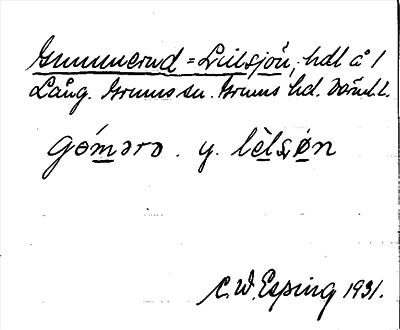 Gummerud = Lillsjön, hdl å 1
Lång. Grums sn. Grums hd. Värml.
gómərə. y. lèlsøn
C.W. Esping 1931.